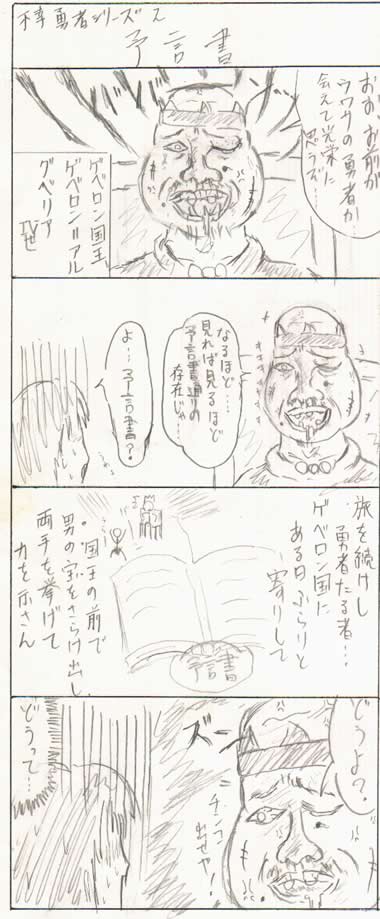 勇者シリーズ2
予言書
おお お前が
ウワサの勇者か…
会えて光栄に
思うズ…
ゲベロン国王
ゲベロン=アル
グベリア
Ⅳ世
なるほど……
見れば見るほど
予言書通りの
存在じゃ…
よ…予言書?
旅を続けし
勇者たる者…
ゲベロン国に
ある日ふらりと
寄りして
予言書
国王の前で
男の宝をさらけ出し、
両手を挙げて
力を示さん
どうよ?
ズーン
チンコ
出せや!
どうって…